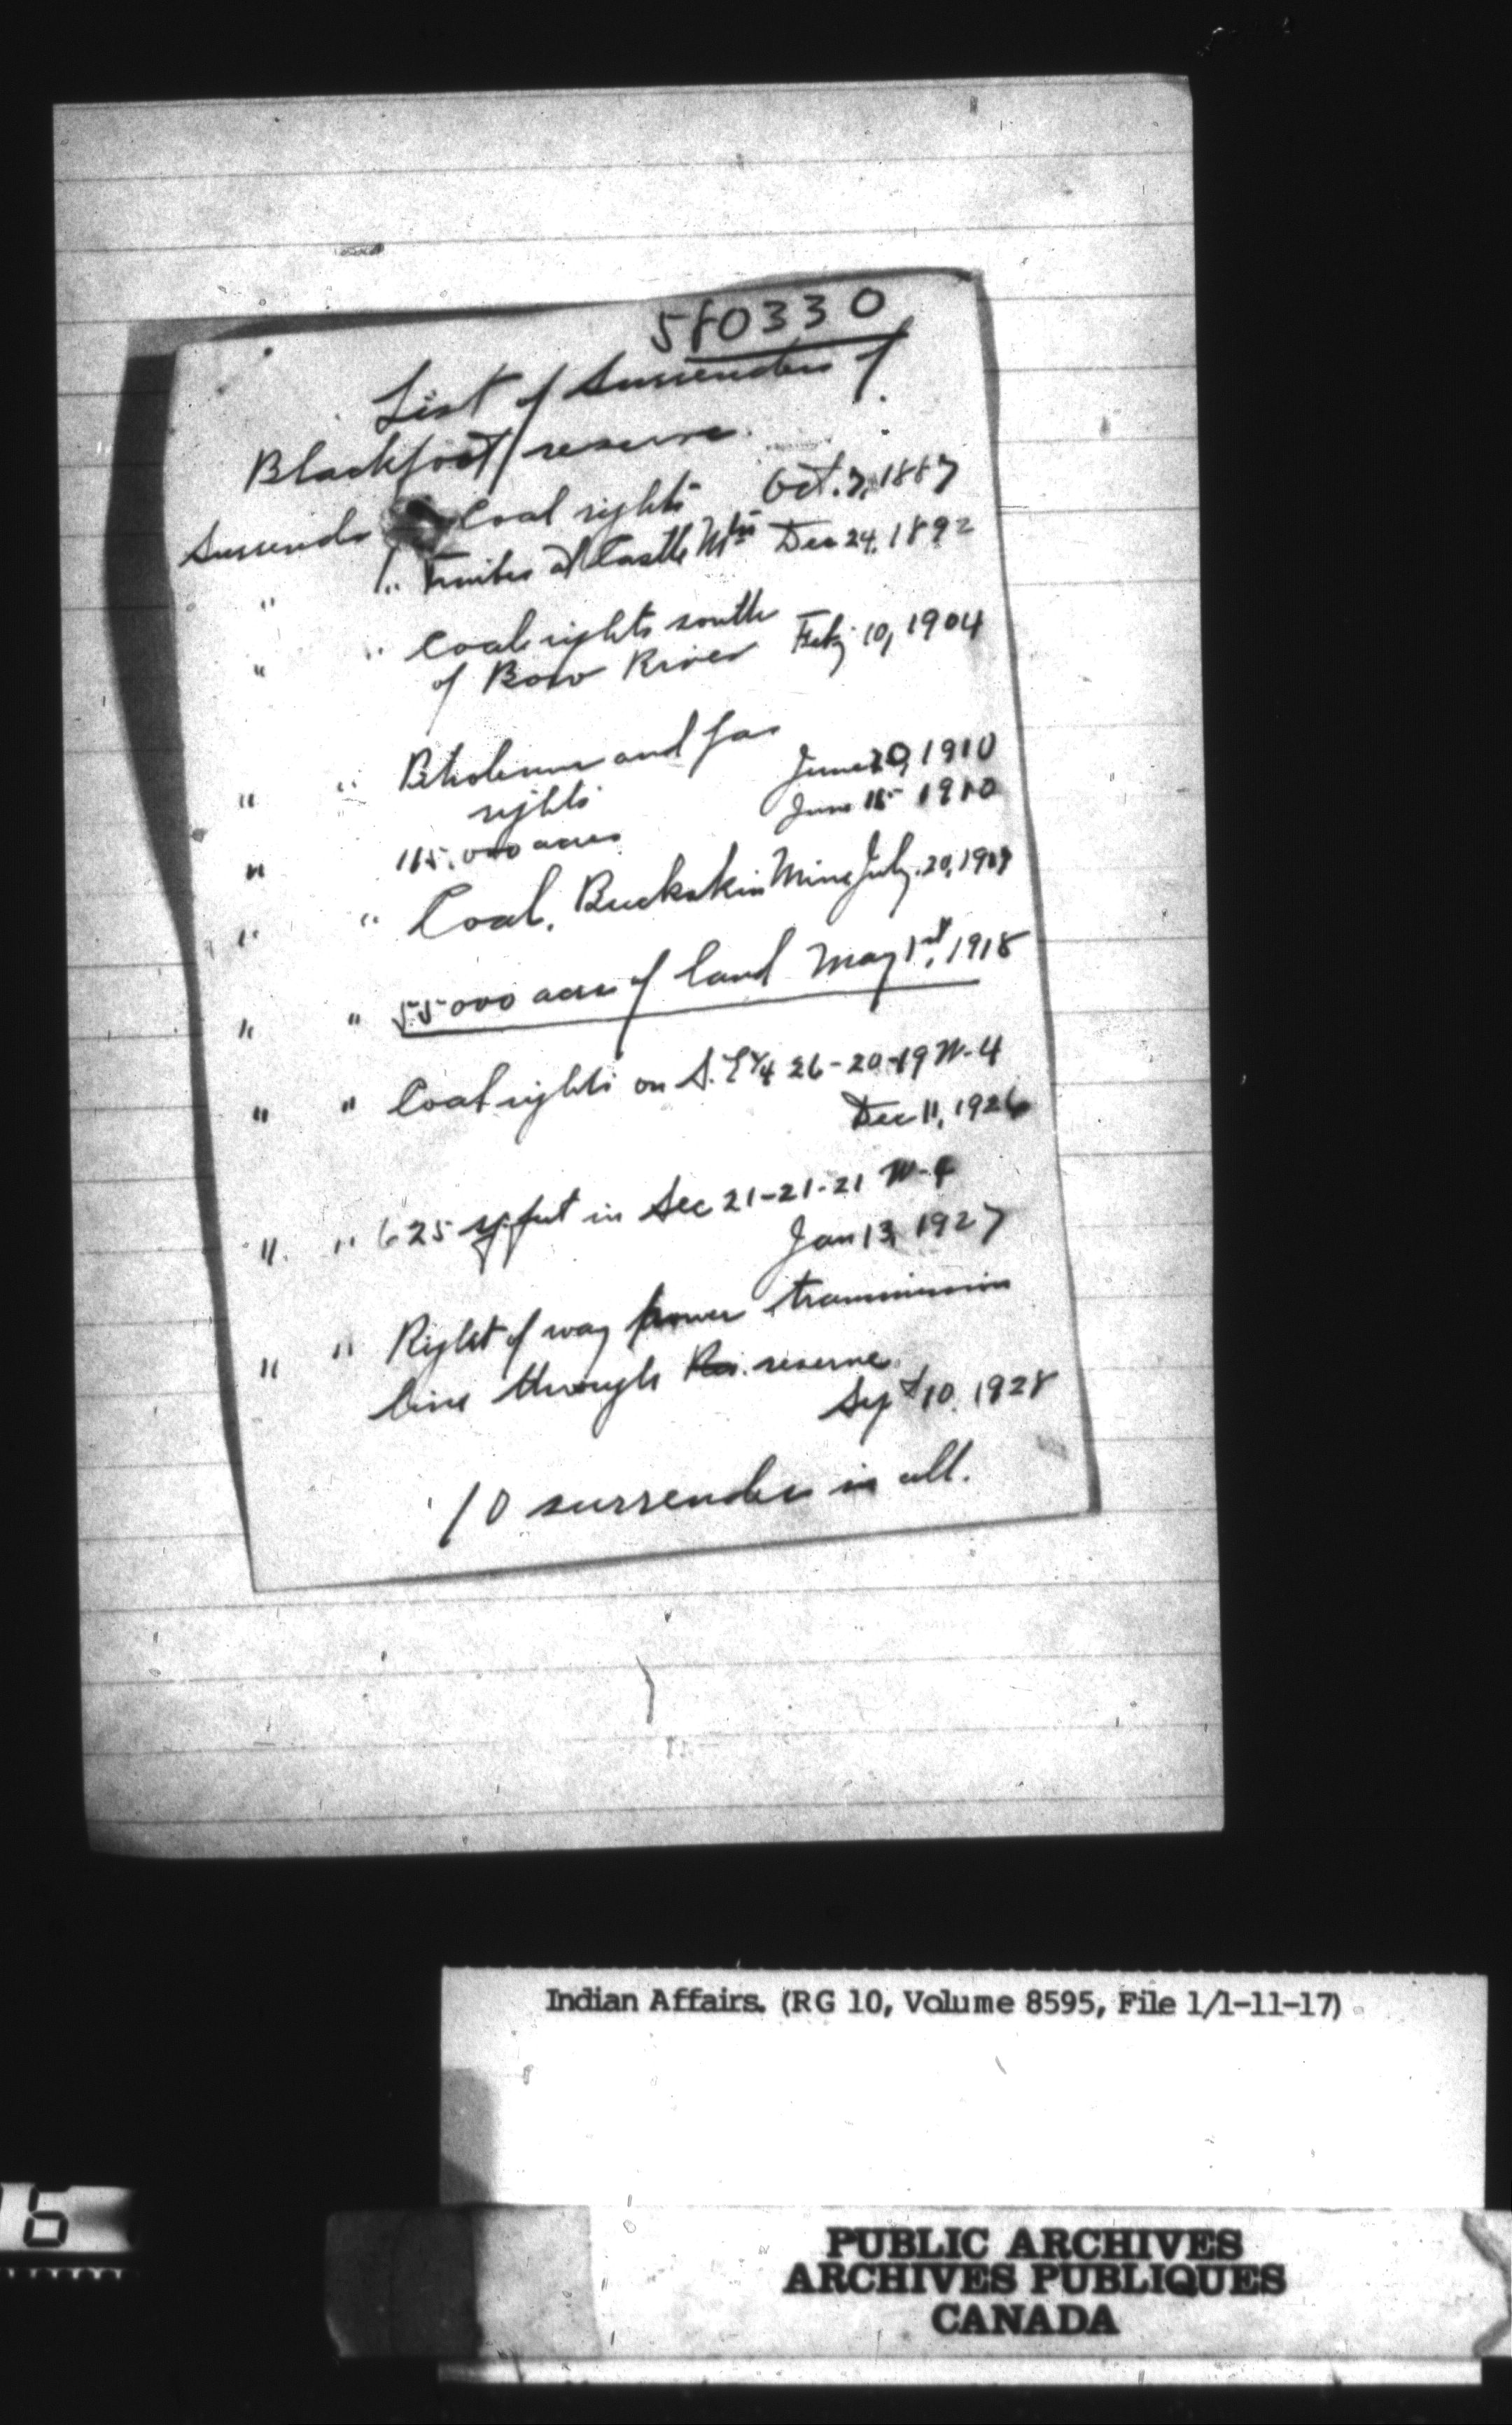 580330
List of Surrenders of
Blackfoot reserve.
Surrender Coal rights Oct. 7, 1887
" " Timber at Castle Mtn Dec 24, 1892
" " Coal rights south
of Bow River Feby 10, 1904
" " Petroleum and Gas
rights June 20, 1910
" 115,000 acres June 15 1910
" " Coal, Buckskin Mine July 20, 19
" " 55000 acres of land May 1st, 1918
" " Coal rights on S.E 1/4 26-20-19 W-4
Dec 11, 1926
" " 625 sq. feet in Sec 21-21-21 W-4
Jan 13, 1927
" " Right of way power transmission
line through Res. reserve
Sept 10, 1928
10 surrenders in all.
Indian Affairs. (RG 10, Volume 8595, File 1/1-11-17)
5
PUBLIC ARCHIVES
ARCHIVES PUBLIQUES
CANADA